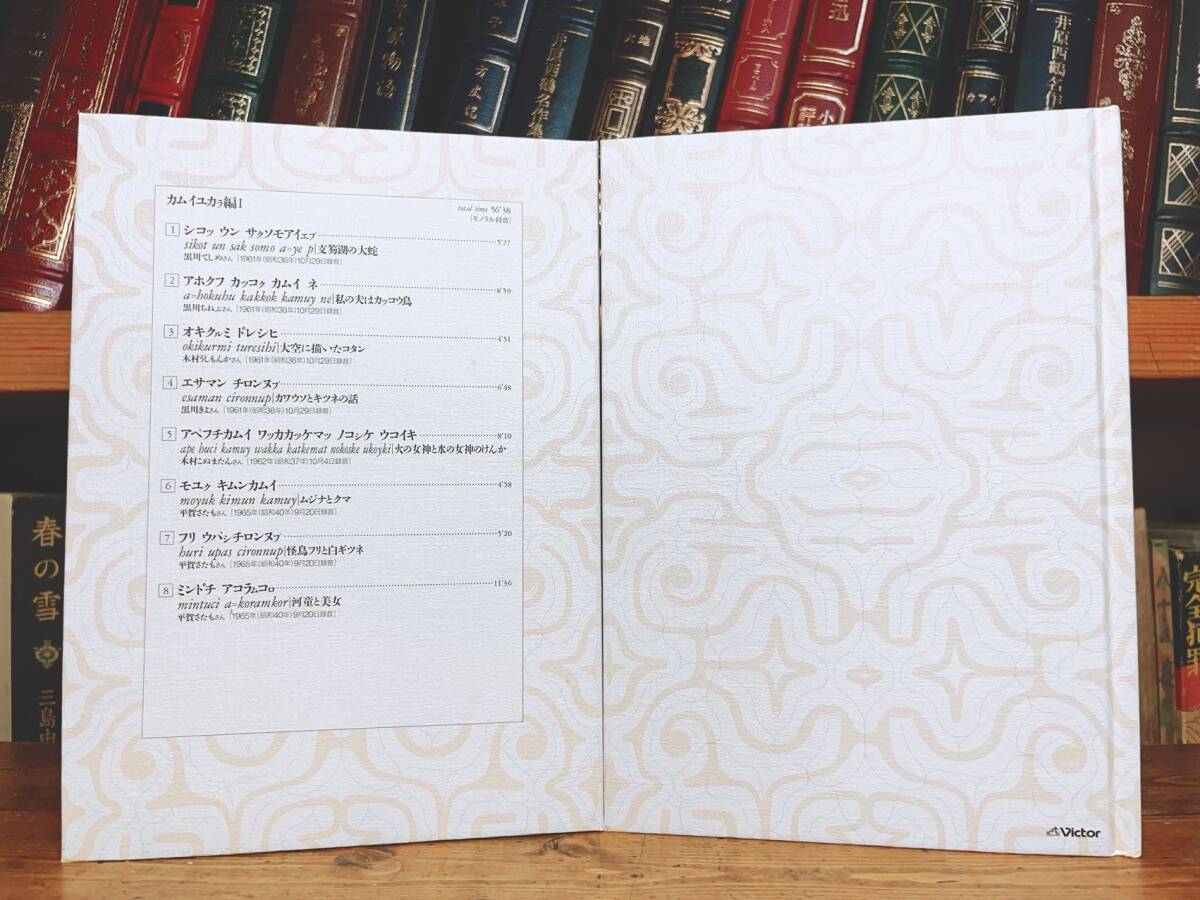 平家物語
方丈記
井原西鶴名作集
カムイユカㇻ編I
total time 56'38
[モノラル録音]
1 シコッ ウン サㇰソモアイェㇷ゚ 5'27
sikot un sak somo a=ye p|支笏湖の大蛇
黒川てしめさん [1961年(昭和36年)10月29日録音]
2 アホクフ カッコㇰ カムイ ネ 8'59
a=hokuhu kakkok kamuy ne|私の夫はカッコウ鳥
黒川ちねぷさん [1961年(昭和36年)10月29日録音]
3 オキクㇽミ トゥレシヒ 4'51
okikurmi turesihi|大空に描いたコタン
木村うしもんかさん [1961年(昭和36年)10月29日録音]
4 エサマン チロンヌㇷ゚ 6'48
esaman cironnup|カワウソとキツネの話
黒川きよさん [1961年(昭和36年)10月29日録音]
5 アペフチカムイ ワッカカッケマッ ノコㇱケ ウコイキ 8'10
ape huci kamuy wakka katkemat nokoske ukoyki|火の女神と水の女神のけんか
木村こぬまたんさん [1962年(昭和37年)10月4日録音]
6 モユㇰ キムンカムイ 4'58
moyuk kimun kamuy|ムジナとクマ
平賀さたもさん [1965年(昭和40年)9月20日録音]
7 フリ ウパㇱチロンヌㇷ゚ 5'20
huri upas cironnup|怪鳥フリと白ギツネ
平賀さたもさん [1965年(昭和40年)9月20日録音]
8 ミントゥチ アコラㇺコㇿ 11'36
mintuci a=koramkor|河童と美女
平賀さたもさん [1965年(昭和40年)9月20日録音]
Victor
春の雪
三島由
完全犯罪